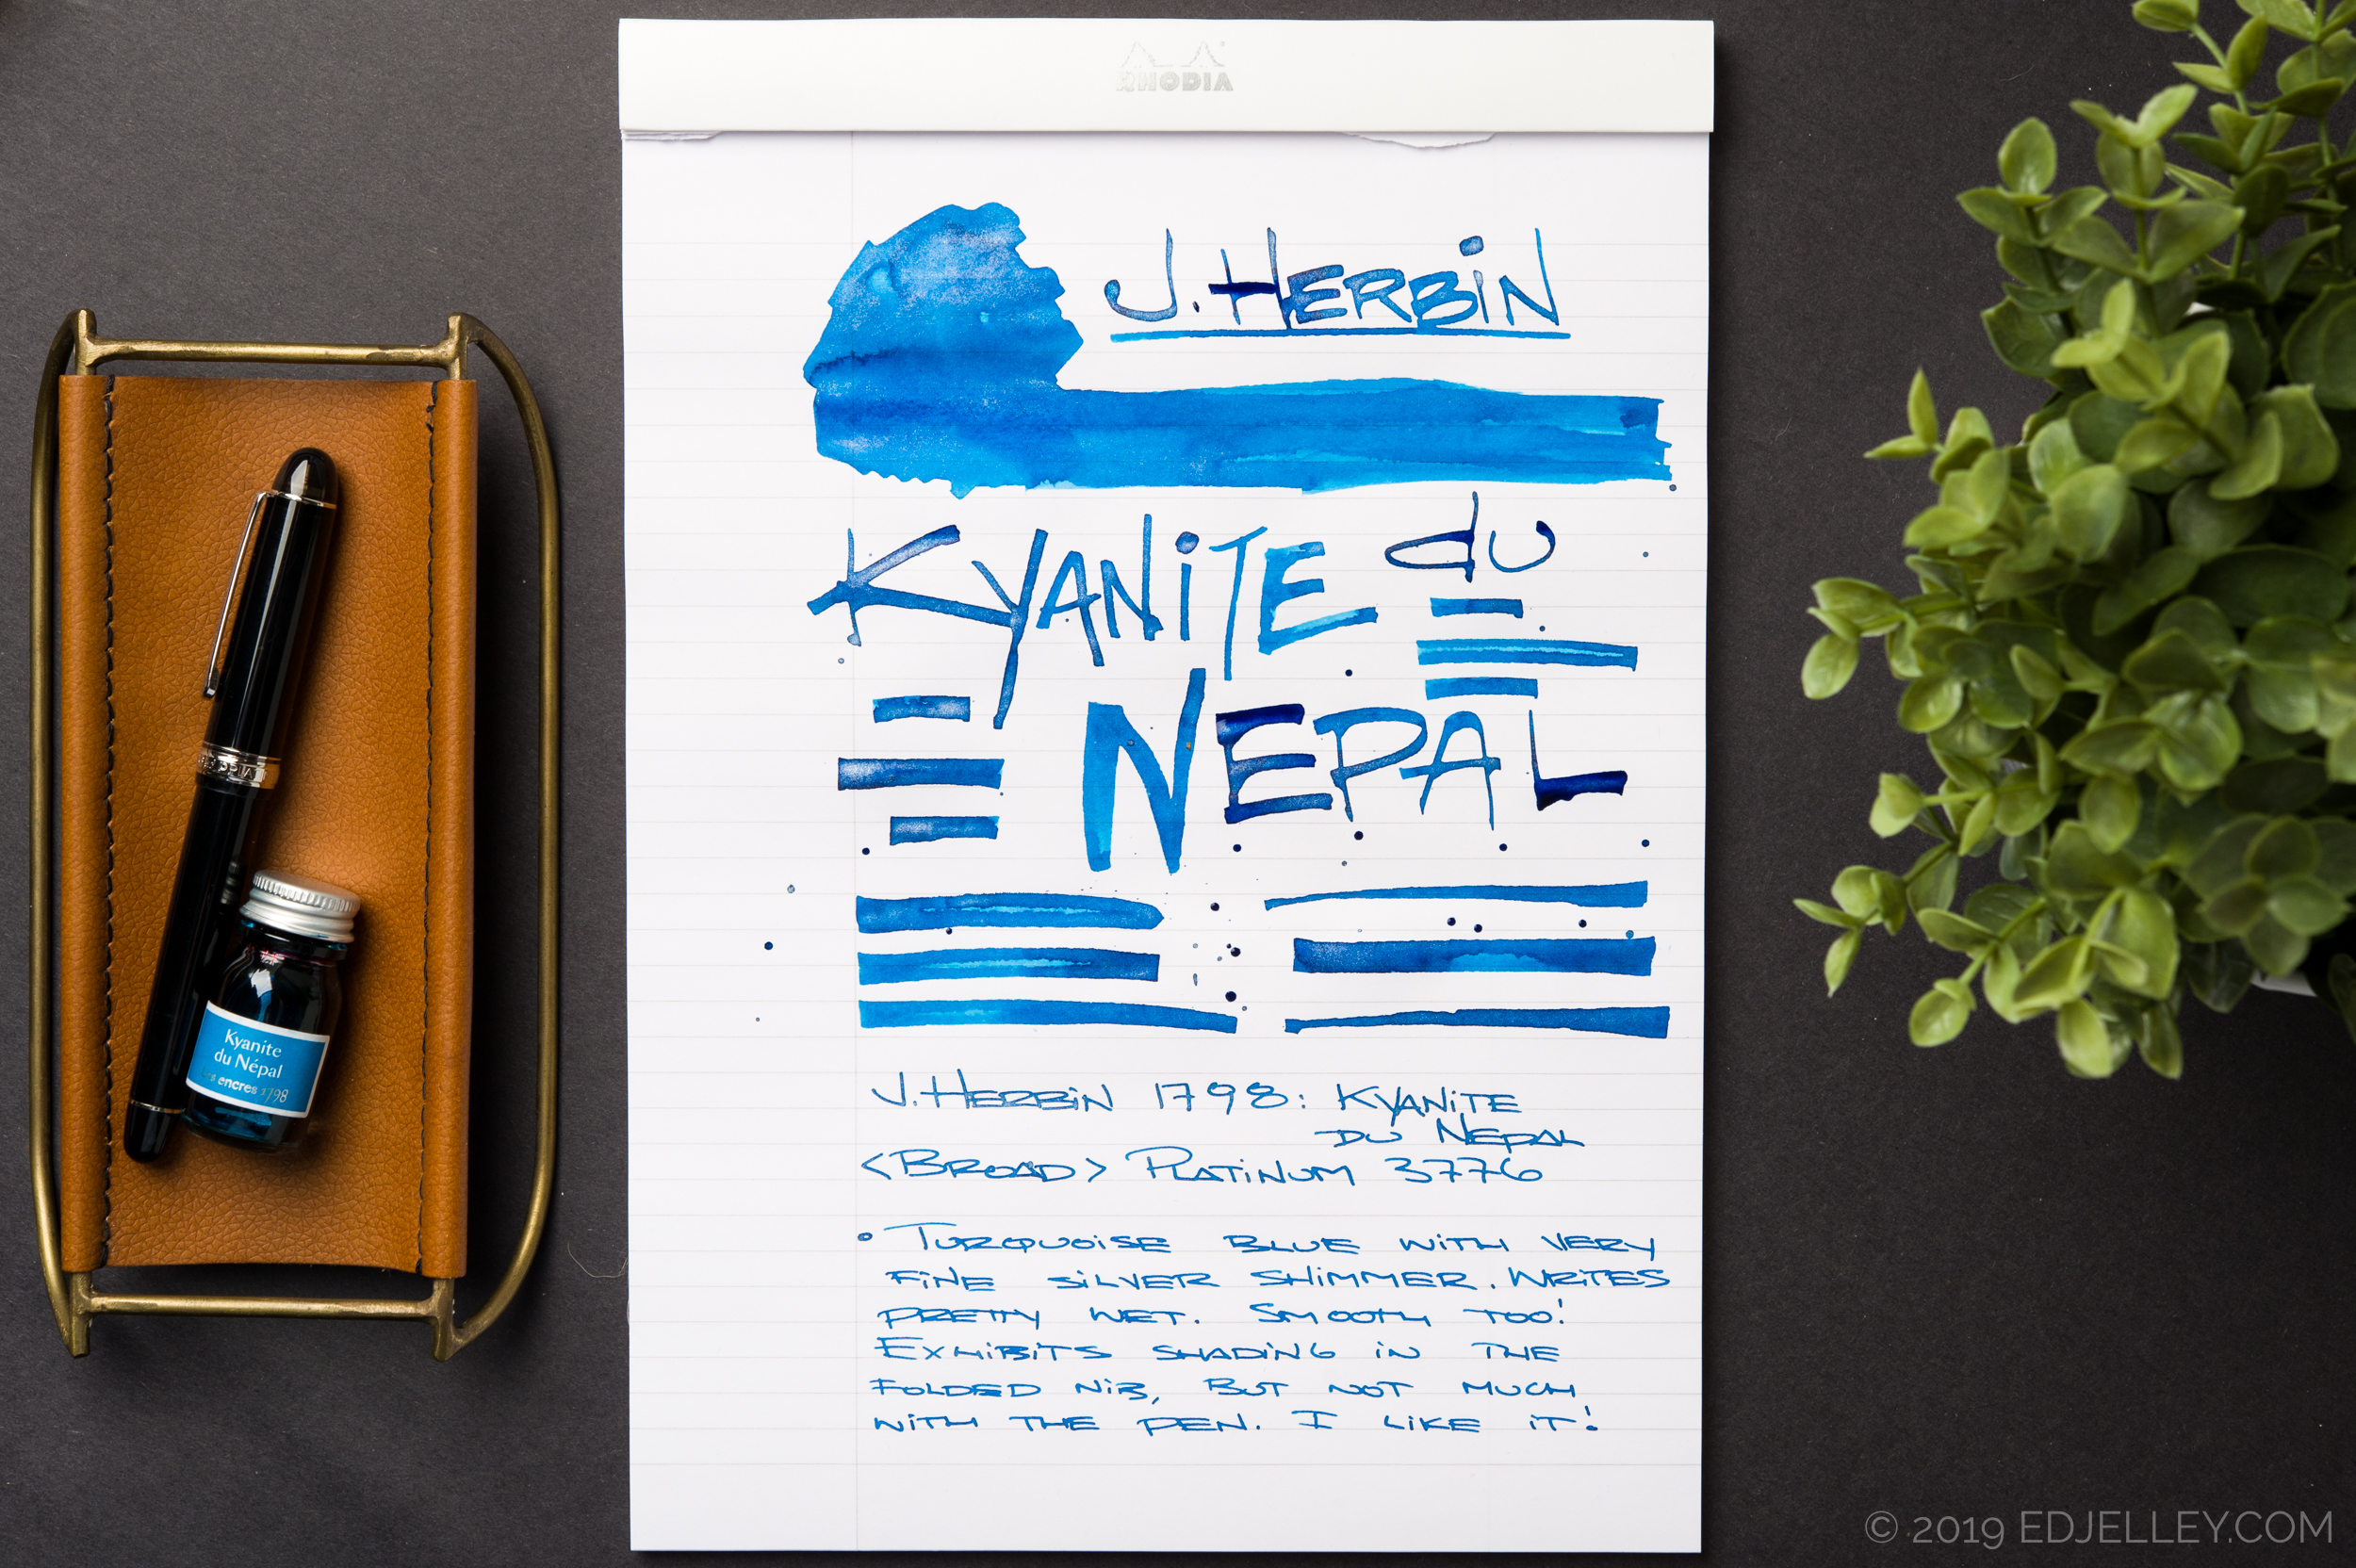 RHODIA
J. HERBIN
KYANITE du
NEPAL
J. HERBIN 1798: KYANITE
DU NEPAL
<BROAD> PLATINUM 3776
• TURQUOISE BLUE WITH VERY
FINE SILVER SHIMMER. WRITES
PRETTY WET. SMOOTH TOO!
EXHIBITS SHADING IN THE
FOLDED NIB, BUT NOT MUCH
WITH THE PEN. I LIKE IT!
Kyanite
du Népal
encres 1798
© 2019 EDJELLEY.COM